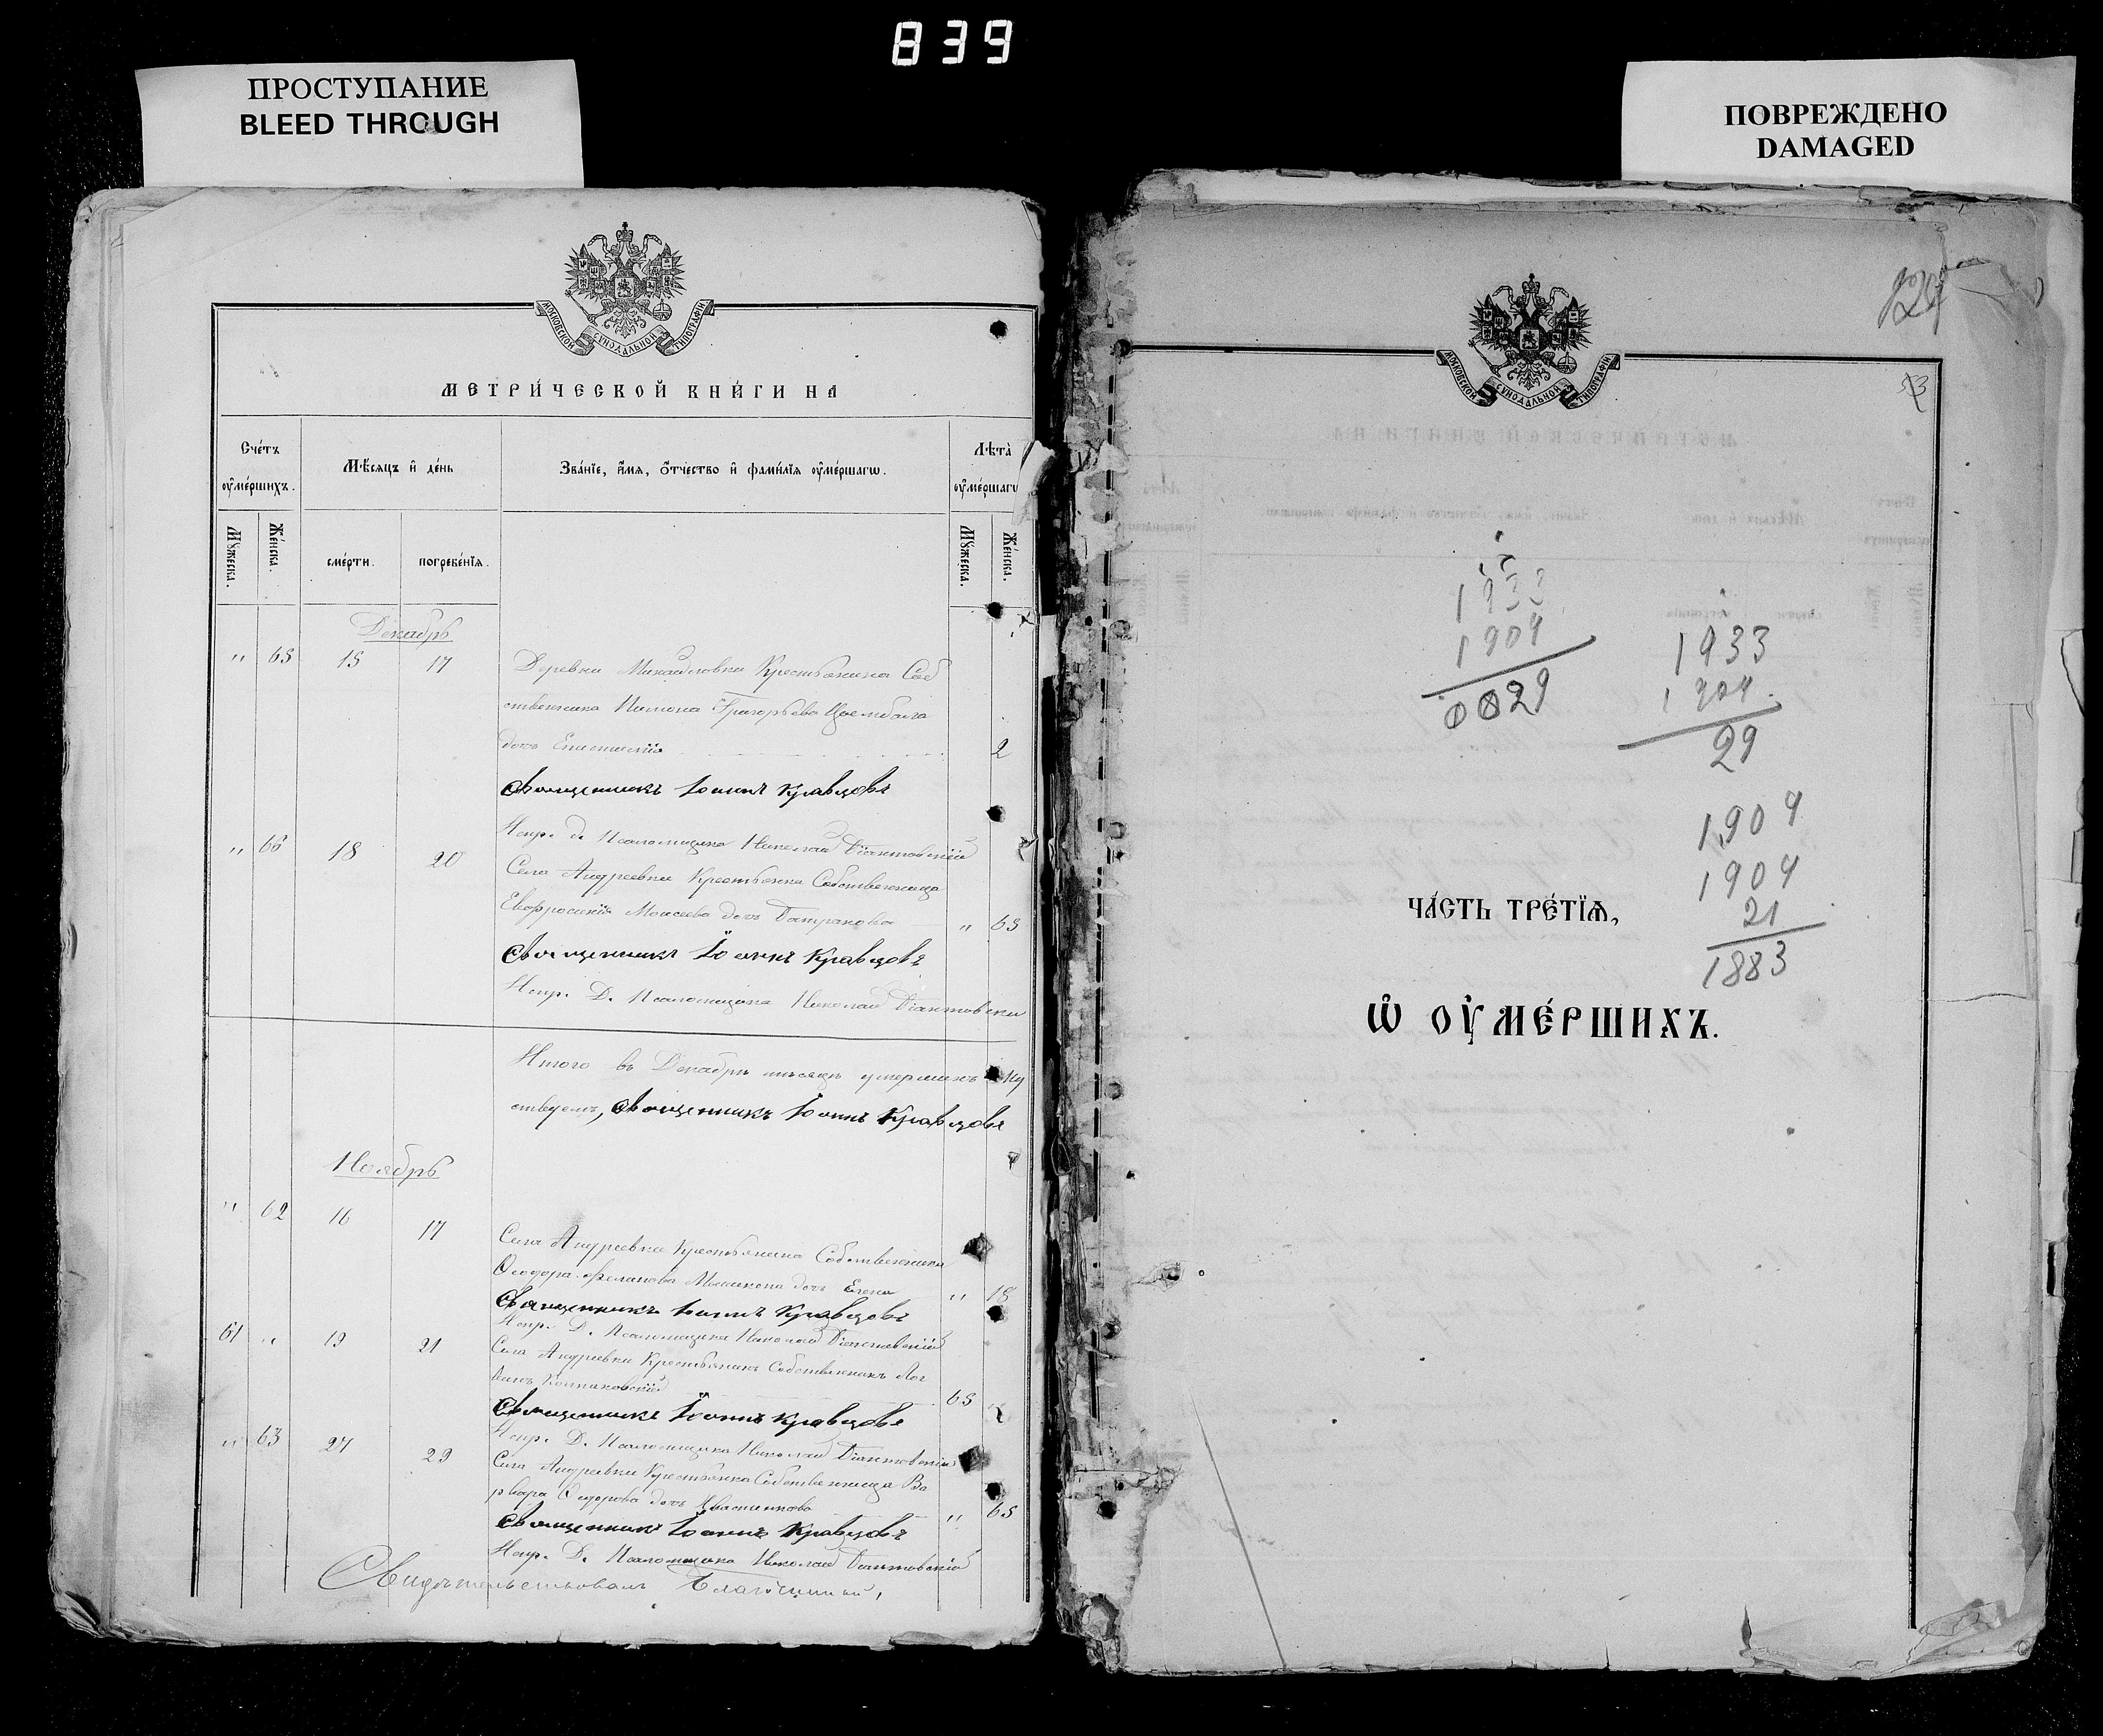 839
ПРОСТУПАНИЕ
BLEED THROUGH
ПОВРЕЖДЕНО
DAMAGED
МОСКОВСКОЙ СѴНОДАЛЬНОЙ ТИПОГРАФІИ
МЕТРИ́ЧЕСКОЙ КНИ́ГИ НА
Сче́тъ оу҆ме́ршихъ.
Мѣ́сяцъ и҆ де́нь
Зва́нїе, и҆́мя, ѻ҆́тчество и҆ фами́лїя оу҆ме́ршагѡ.
Лѣ́та оу҆ме́ршагѡ
Мꙋ́жеска.
Же́нска.
сме́рти.
погребе́нїя.
Мꙋ́жеска.
Же́нска.
Декабрь
" 65 15 17 Деревни Михайловки Крестьянина Соб
ственника Григорьева
дочь 2
Священникъ Іоаннъ Кравцовъ
" 66 18 20 Испр. д. Псаломщика Николай
Села Андреевки Крестьянка Собственница
Евфросинія Моисеева дочь " 65
Священникъ Іоаннъ Кравцовъ
Испр. Д. Псаломщика Николай
Итого въ Декабрѣ мѣсяцѣ умершихъ
Священникъ Іоаннъ Кравцовъ
Ноябрь
" 62 16 17 Села Андреевки Крестьянина Собственника
Ѳеодора дочь Елена " 18
Священникъ Іоаннъ Кравцовъ
Испр. Д. Псаломщика Николай
61 " 19 21 Села Андреевки Крестьянинъ Собственникъ Лог
винъ 65
Священникъ Іоаннъ Кравцовъ
Испр. Д. Псаломщика Николай
" 63 27 29 Села Андреевки Крестьянка Собственница Ва
рвара Ѳедорова дочь " 65
Священникъ Іоаннъ Кравцовъ
Испр. Д. Псаломщика Николай
Свидѣтельствовалъ Благочинный,
МОСКОВСКОЙ СѴНОДАЛЬНОЙ ТИПОГРАФІИ
1933
1904
0029
1933
1904
29
1904
1904
21
1883
ЧА́СТЬ ТРЕ́ТЇѦ,
Ѡ҆ ОУ҆МЕ́РШИХЪ.